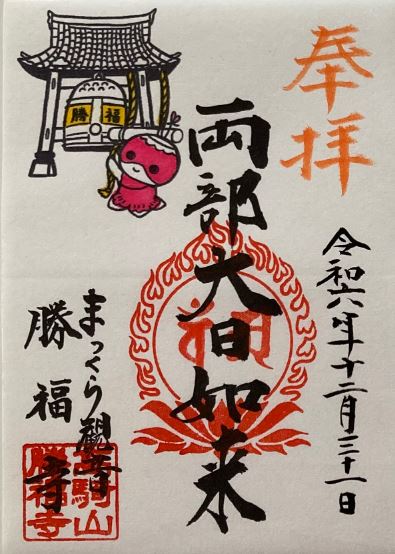 奉拝
令和六年十二月三十一日
両部大日如来
まっくら観音
勝福寺
勝福
駒山
勝福寺